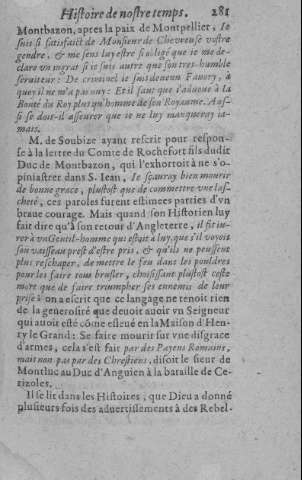 Histoire de nostre temps. 281
Montbazon, apres la paix de Montpellier, Ie
suis si satisfaict de Monsieur de Cheureuse vostre
gendre, & me sens luy estre si obligé que ie me de-
clare vn ingrat si ie suis autre que son tres-humble
seruiteur: De criminel ie suis deuenu Fauory, à
quoy il ne m'a pas nuy: Et il faut que i'aduoüe à la
Bonté du Roy plus qu'homme de son Royaume. Aus-
si se doit-il asseurer que ie ne luy manqueray ia-
mais.
M. de Soubize ayant rescrit pour respon-
se à la lettre du Comte de Rochefort fils dudit
Duc de Montbazon, qui l'exhortoit à ne s'o-
piniastrer dans S. Iean, Ie sçauray bien mourir
de bonne grace, plustost que de commettre vne las-
cheté, ces paroles furent estimees parties d'vn
braue courage. Mais quand son Historien luy
fait dire qu'à son retour d'Angleterre, il fit iu-
rer à vn Gentil-homme qui estoit à luy, que s'il voyoit
son vaisseau prest d'estre pris, & qu'ils ne peussent
plus reschaper, de mettre le feu dans les pouldres
pour les faire tous brusler, choisissant plustost ceste
mort que de faire triumpher ses ennemis de leur
prise: on a escrit que ce langage ne tenoit rien
de la generosité que deuoit auoir vn Seigneur
qui auoit esté côme esleué en la Maison d'Hen-
ry le Grand: Se faire mourir sur vne disgrace
d'armes, cela s'est fait par des Payens Romains,
mais non pas par des Chrestiens, disoit le sieur de
Montluc au Duc d'Anguien à la bataille de Ce-
rizoles.
Il se lit dans les Histoires, que Dieu a donné
plusieurs fois des aduertissements à des Rebel-